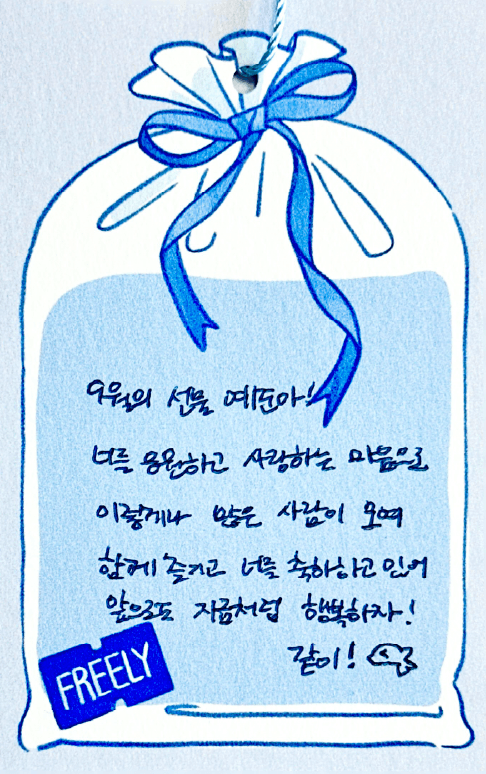 9월의 선물 예돈아!
너를 응원하고 사랑하는 마음으로
이렇게나 많은 사람이 모여
함께 즐기고 너를 축하하고 있어
앞으로도 지금처럼 행복하자!
같이!
FREELY